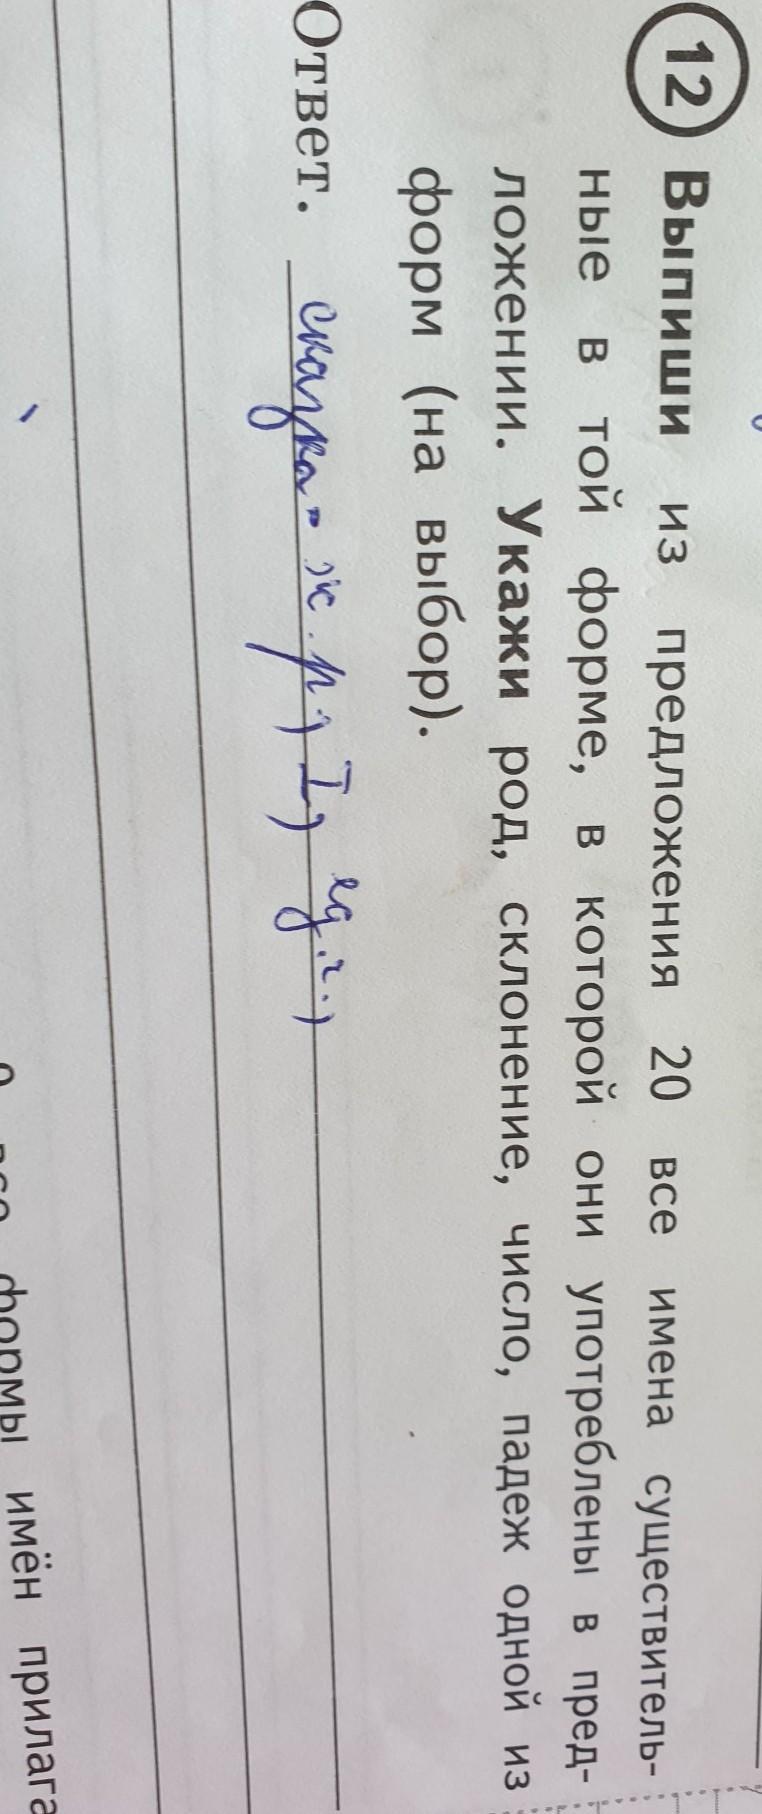 12 Выпиши из предложения 20 все имена существитель-
ные в той форме, в которой они употреблены в пред-
ложении. Укажи род, склонение, число, падеж одной из
форм (на выбор).
Ответ. сказка - ж.р., I, ед.ч.,
формы имён прилага